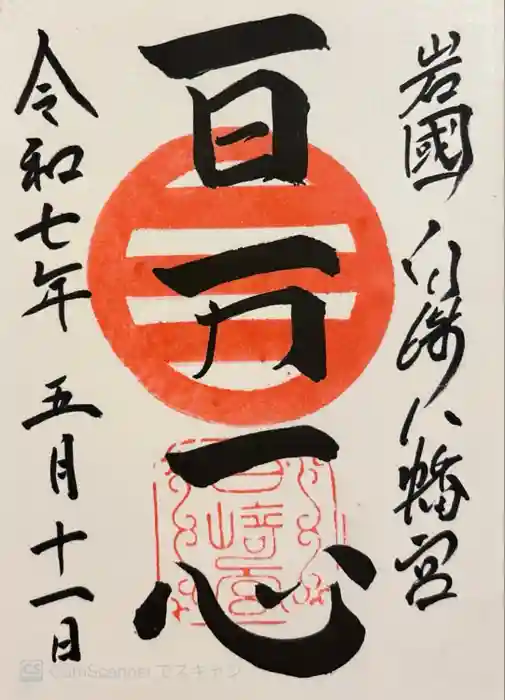 岩國白崎八幡宮
百万一心
令和七年 五月十一日
白崎宮
CS CamScanner でスキャン